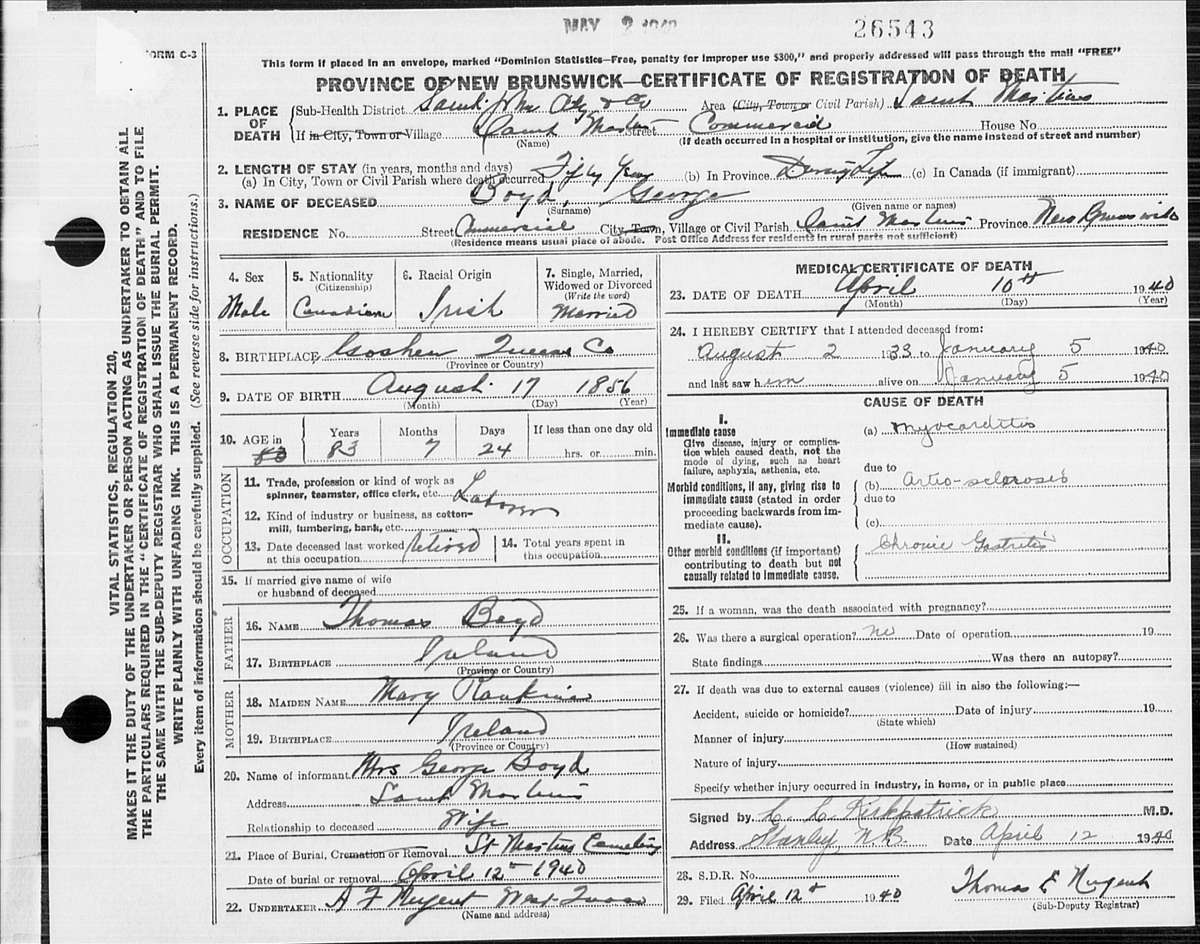 MAY 2 1940
26543
FORM C-3
This form if placed in an envelope, marked "Dominion Statistics—Free, penalty for improper use $300," and properly addressed will pass through the mail "FREE"
PROVINCE OF NEW BRUNSWICK—CERTIFICATE OF REGISTRATION OF DEATH
1. PLACE OF DEATH
Sub-Health District Saint John City & Co Area (City, Town or Civil Parish) Saint Martins
If in City, Town or Village Saint Martins Street Commercial House No.
(Name) (If death occurred in a hospital or institution, give the name instead of street and number)
2. LENGTH OF STAY (in years, months and days)
(a) In City, Town or Civil Parish where death occurred Fifty Years (b) In Province During Life (c) In Canada (if immigrant)
3. NAME OF DECEASED Boyd, George
(Surname) (Given name or names)
RESIDENCE No. Street Commercial City, Town, Village or Civil Parish Saint Martins Province New Brunswick
(Residence means usual place of abode. Post Office Address for residents in rural parts not sufficient)
4. Sex
Male
5. Nationality
(Citizenship)
Canadian
6. Racial Origin
Irish
7. Single, Married,
Widowed or Divorced
(Write the word)
Married
8. BIRTHPLACE Goshen Queens Co
(Province or Country)
9. DATE OF BIRTH August 17 1856
(Month) (Day) (Year)
10. AGE in 83
Years Months Days If less than one day old
83 7 24 hrs. or min.
OCCUPATION
11. Trade, profession or kind of work as
spinner, teamster, office clerk, etc. Laborer
12. Kind of industry or business, as cotton-
mill, lumbering, bank, etc.
13. Date deceased last worked
at this occupation retired
14. Total years spent in
this occupation
15. If married give name of wife
or husband of deceased
FATHER
16. NAME Thomas Boyd
17. BIRTHPLACE Ireland
(Province or Country)
MOTHER
18. MAIDEN NAME Mary Rankin
19. BIRTHPLACE Ireland
(Province or Country)
20. Name of informant Mrs George Boyd
Address Saint Martins
Relationship to deceased Wife
21. Place of Burial, Cremation or Removal St Martins Cemetery
Date of burial or removal April 12th 1940
22. UNDERTAKER A F Nugent West
(Name and address)
MEDICAL CERTIFICATE OF DEATH
23. DATE OF DEATH April 10th 1940
(Month) (Day) (Year)
24. I HEREBY CERTIFY that I attended deceased from:
August 2 1933 to January 5 1940
and last saw him alive on January 5 1940
CAUSE OF DEATH
I.
Immediate cause
Give disease, injury or complica-
tion which caused death, not the
mode of dying, such as heart
failure, asphyxia, asthenia, etc.
(a) Myocarditis
due to
Morbid conditions, if any, giving rise to
immediate cause (stated in order
proceeding backwards from im-
mediate cause).
(b) Arterio-sclerosis
due to
(c)
II.
Other morbid conditions (if important)
contributing to death but not
causally related to immediate cause.
Chronic Gastritis
25. If a woman, was the death associated with pregnancy?
26. Was there a surgical operation? no Date of operation 19
State findings Was there an autopsy?
27. If death was due to external causes (violence) fill in also the following:—
Accident, suicide or homicide? Date of injury 19
(State which)
Manner of injury
(How sustained)
Nature of injury
Specify whether injury occurred in industry, in home, or in public place
Signed by Kirkpatrick M.D.
Address Stanley N.B. Date April 12 1940
28. S.D.R. No.
29. Filed April 12th 1940
Thomas E Nugent
(Sub-Deputy Registrar)
VITAL STATISTICS, REGULATION 210,
MAKES IT THE DUTY OF THE UNDERTAKER OR PERSON ACTING AS UNDERTAKER TO OBTAIN ALL
THE PARTICULARS REQUIRED IN THE "CERTIFICATE OF REGISTRATION OF DEATH" AND TO FILE
THE SAME WITH THE SUB-DEPUTY REGISTRAR WHO SHALL ISSUE THE BURIAL PERMIT.
WRITE PLAINLY WITH UNFADING INK. THIS IS A PERMANENT RECORD.
Every item of information should be carefully supplied. (See reverse side for instructions.)